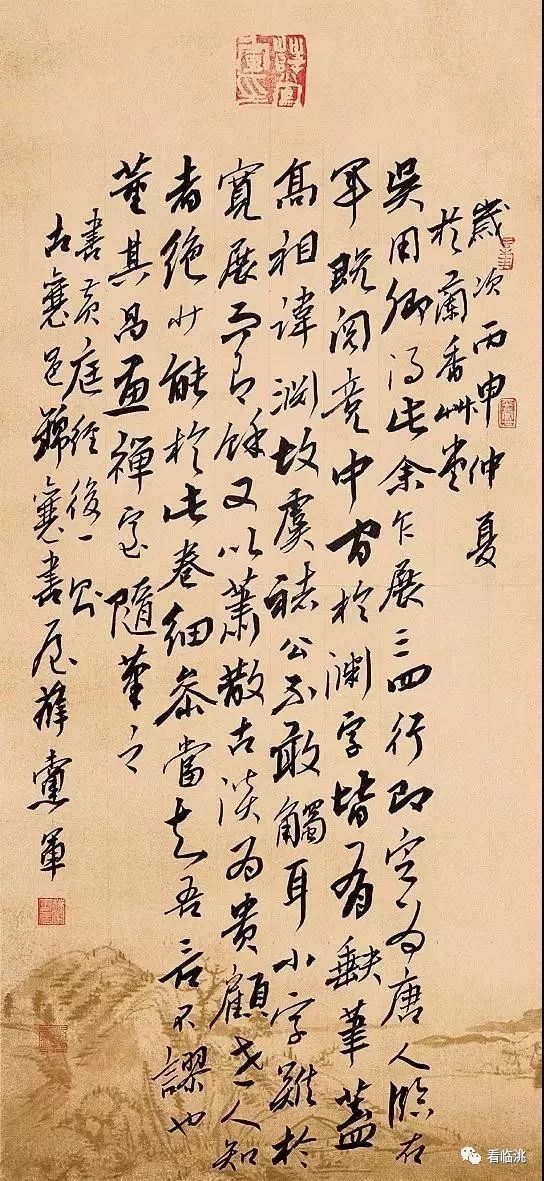 歲次丙申仲夏
於蘭香艸堂
吳用卿得此余乍展三四行即定為唐人臨右
軍既閱竟中間於淵字皆有缺筆蓋
高祖諱淵故虞褚公不敢觸耳小字難於
寬展而有餘又以蕭散古淡為貴顧世人知
者絕少能於此卷細參當知吾言不謬也
董其昌畫禪室隨筆之
書黃庭經後一則
古襄邑襄書屋薛黨軍
看临洮